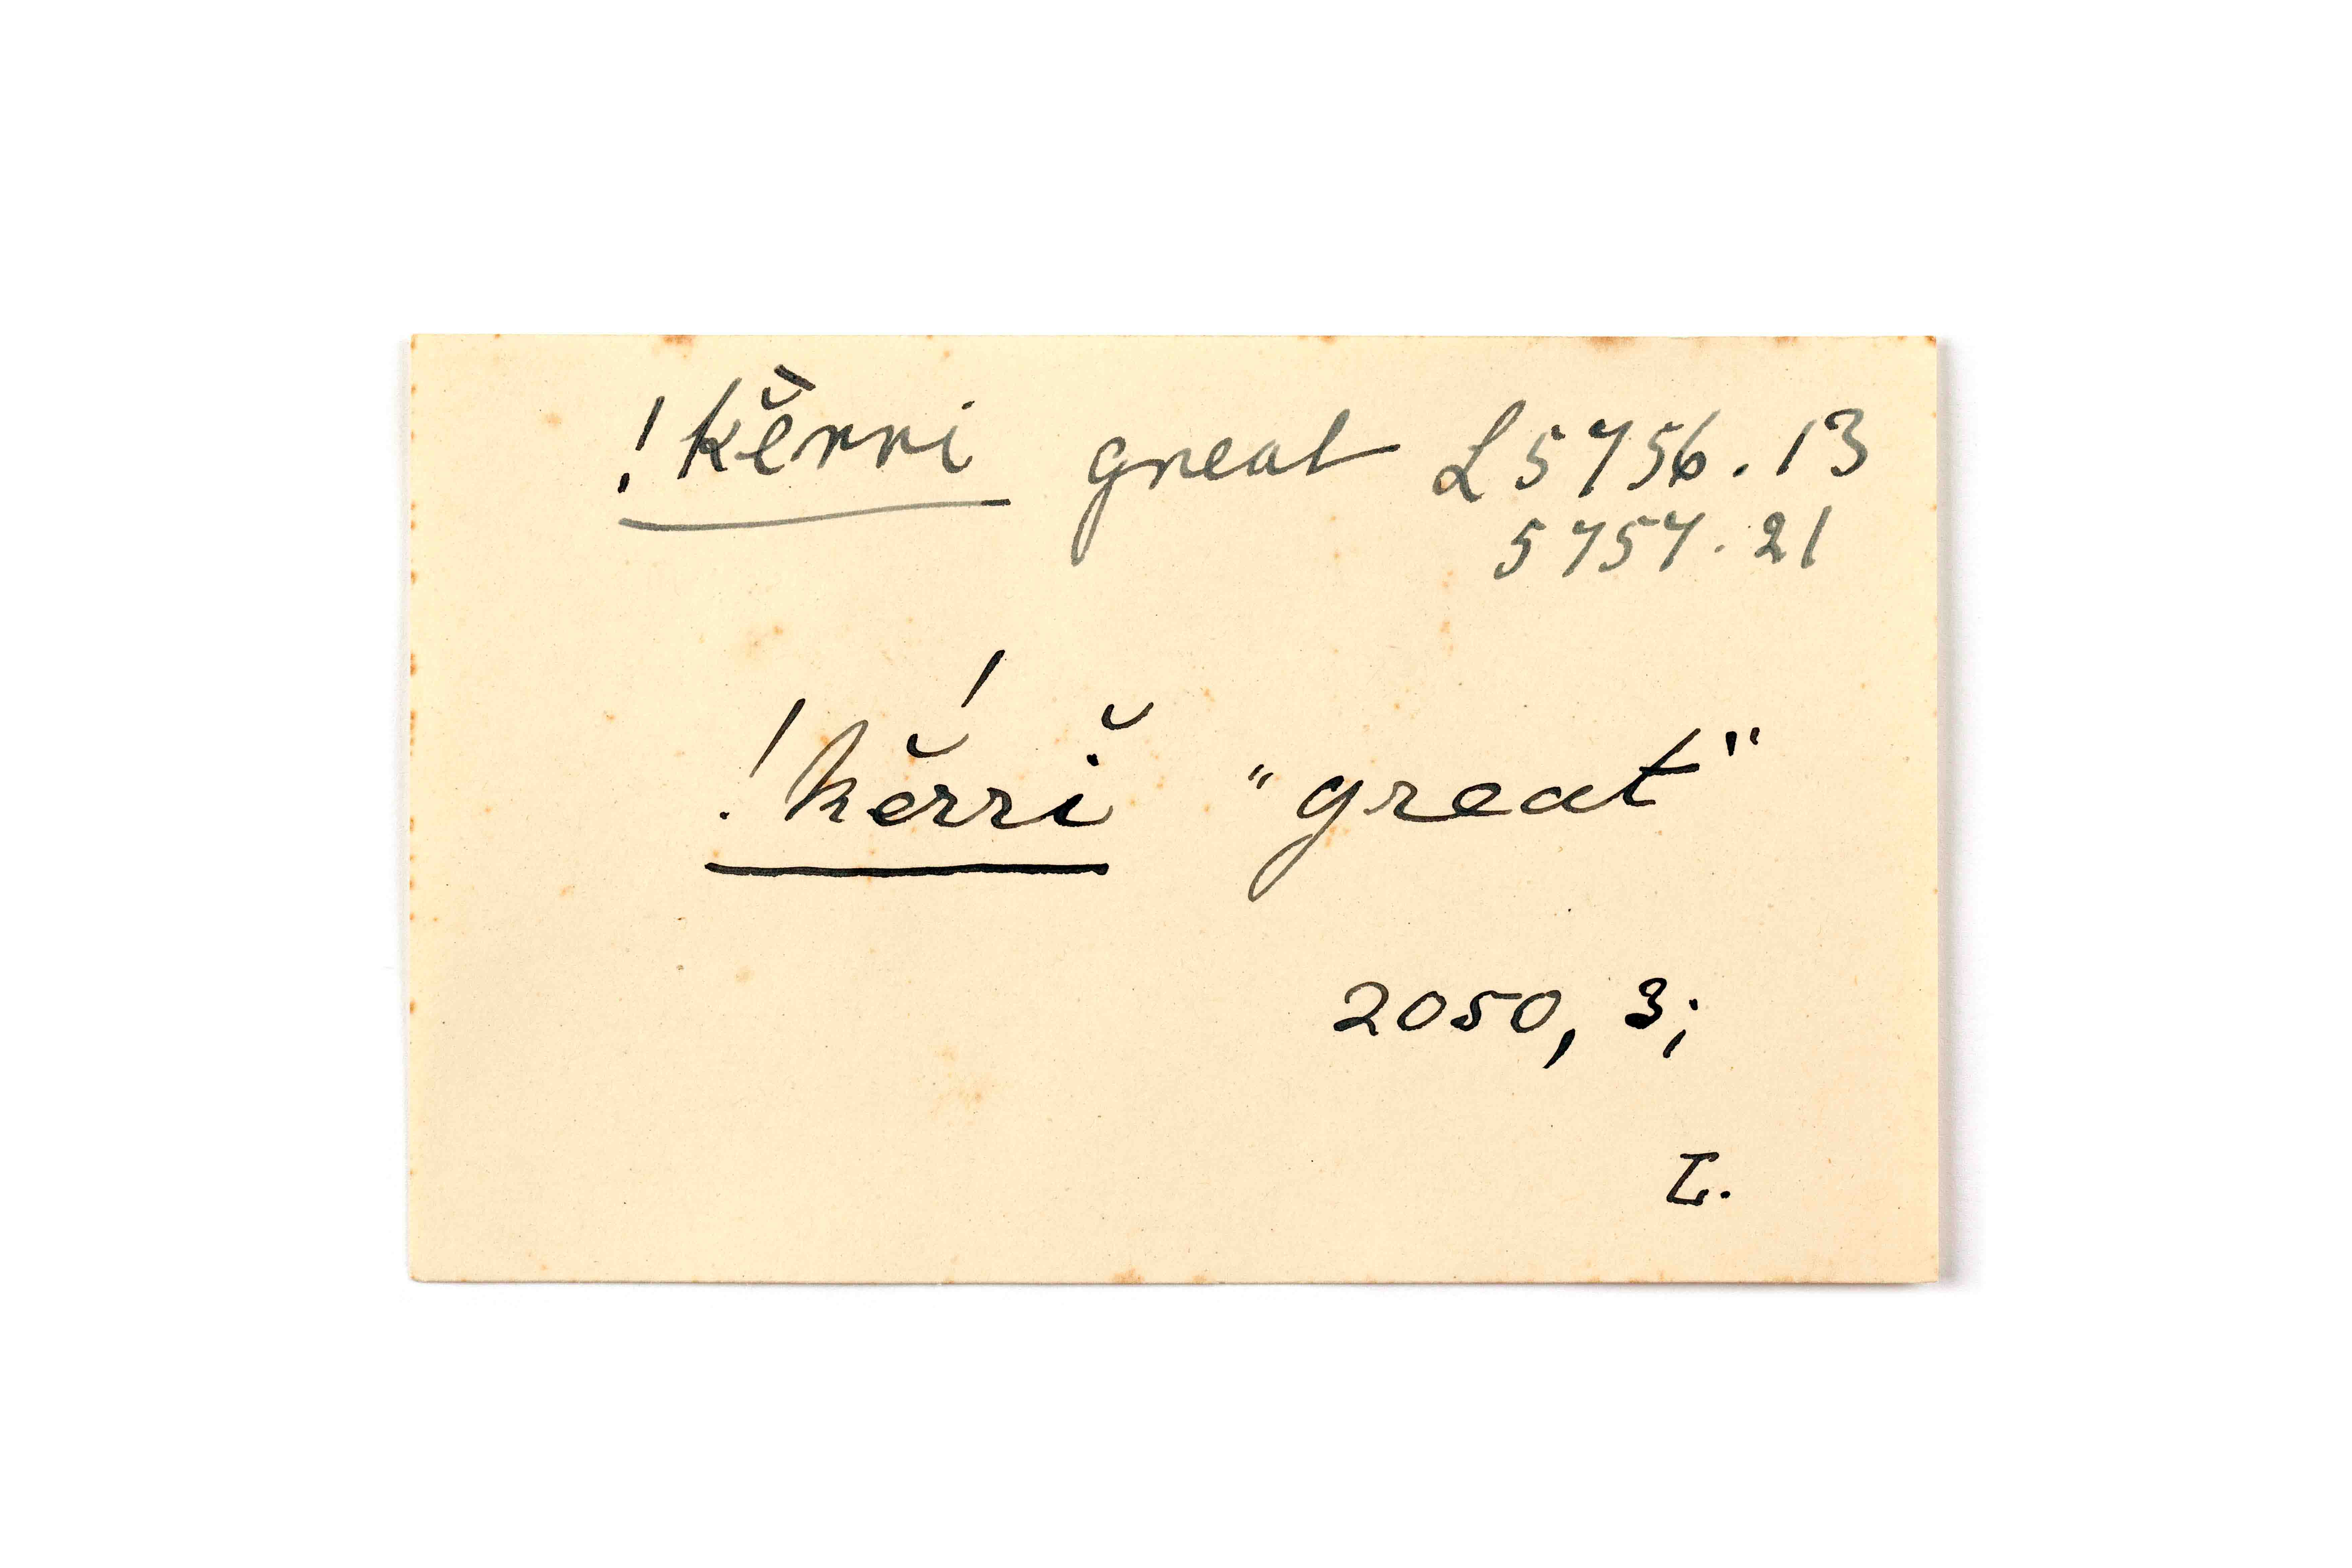 !kĕ̀rri great L 5756.13
5757.21
!kĕ́rrĭ "great"
2050, 3;
L.